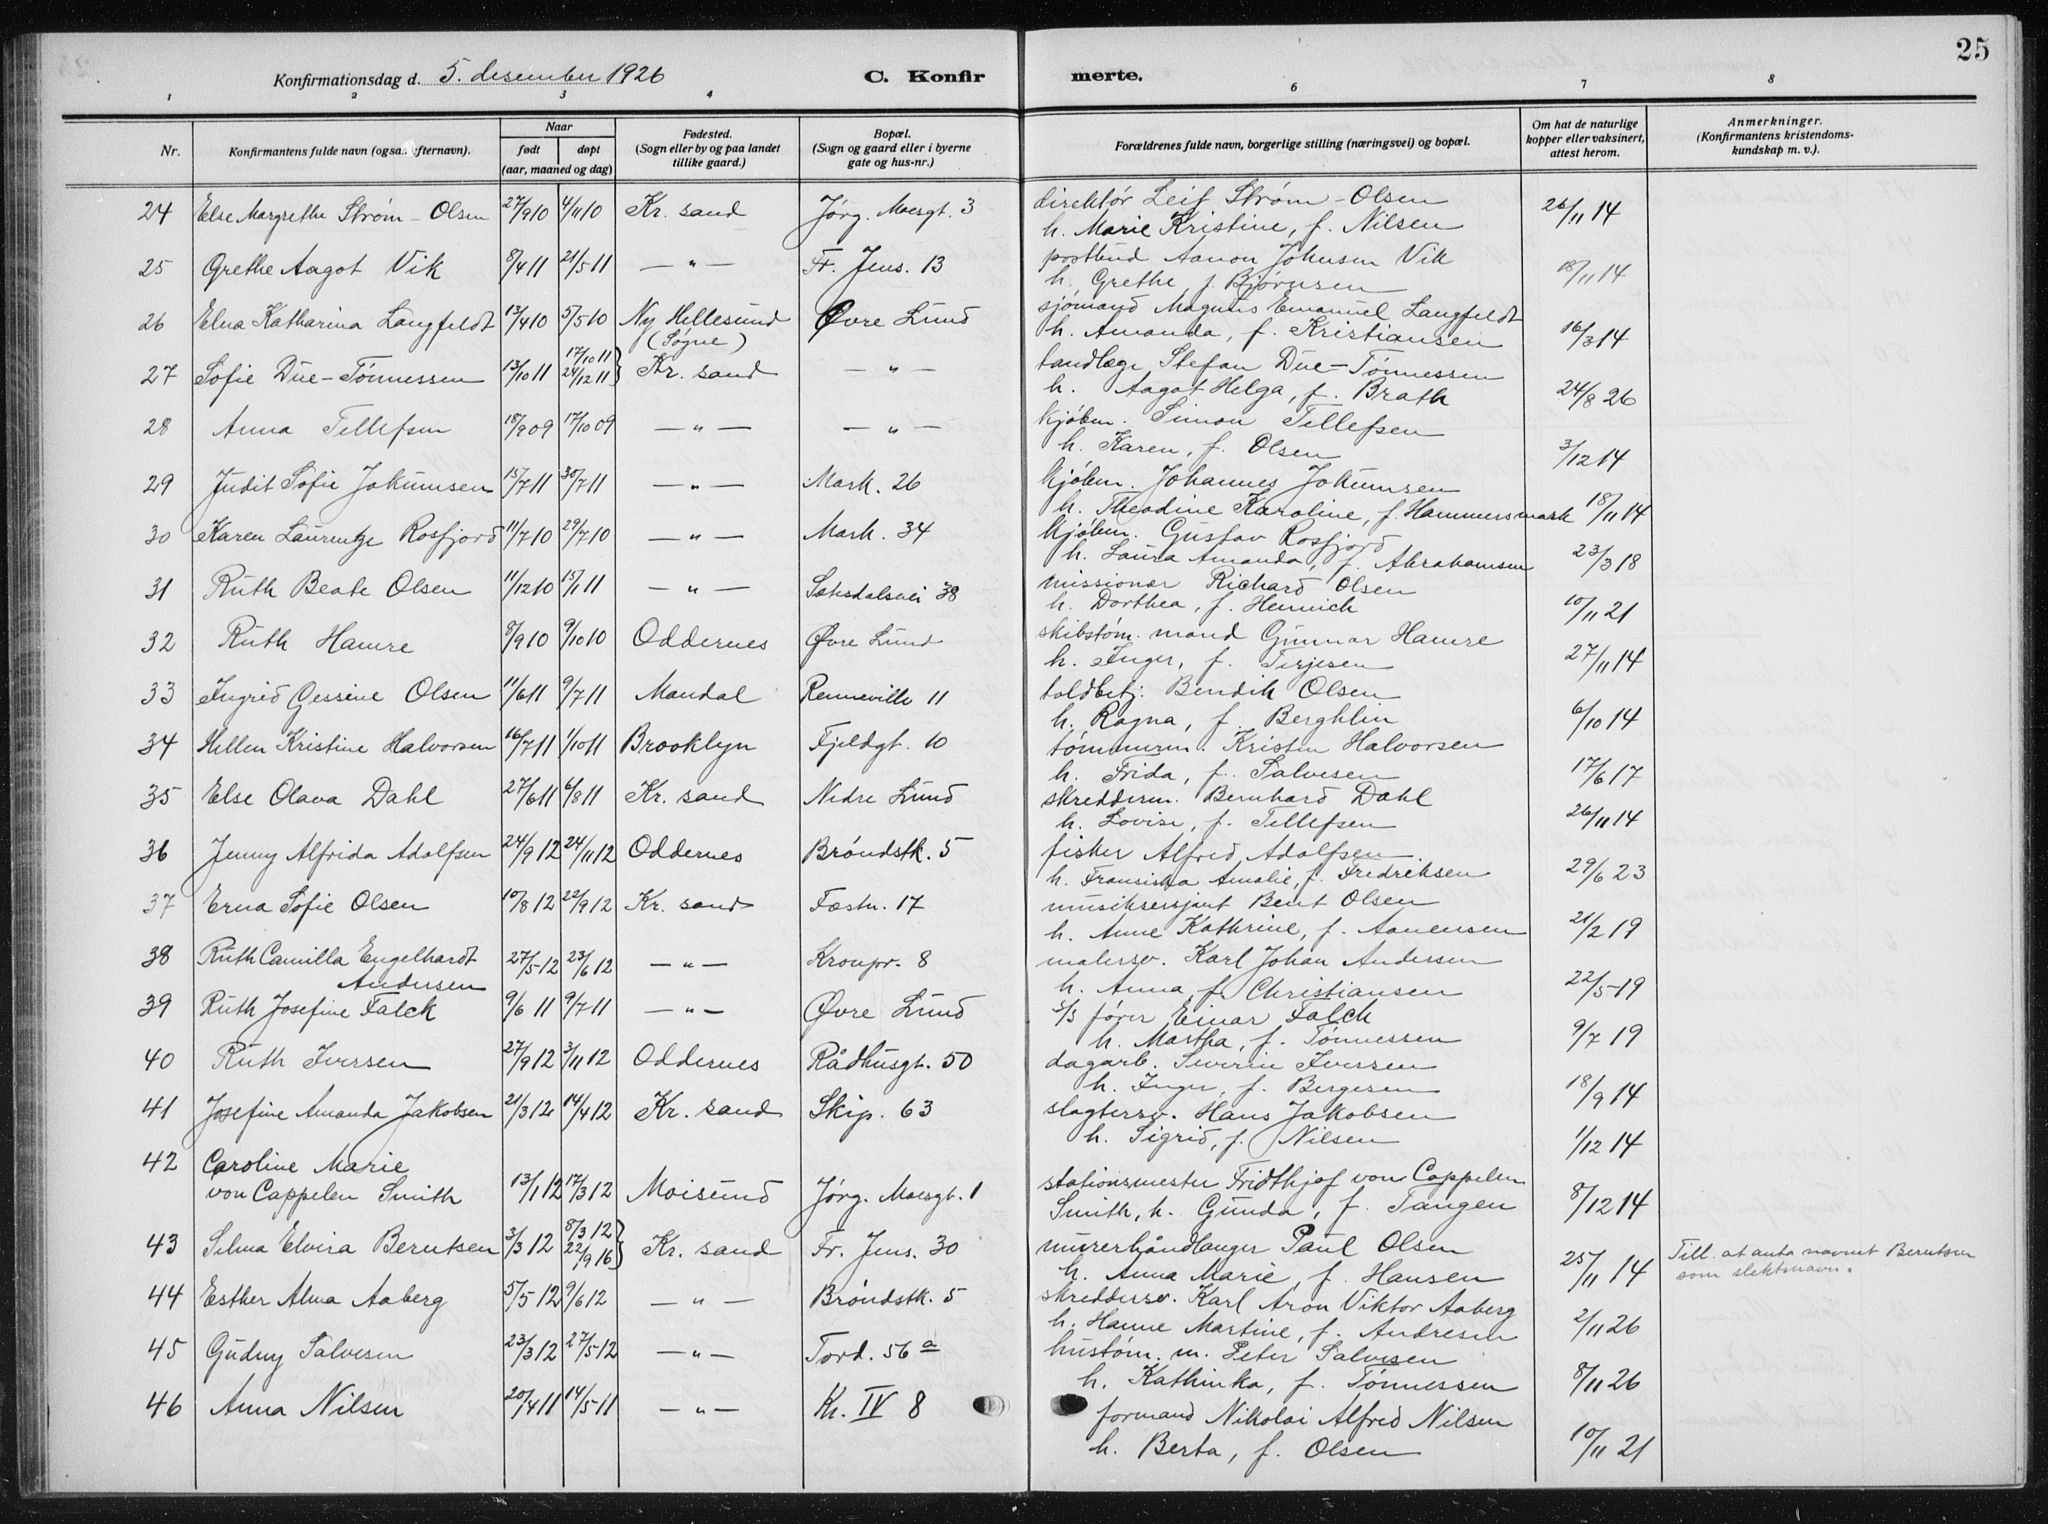 25
Konfirmationsdag d. 5. desember 1926 C. Konfirmerte.
1 2 3 4 6 7 8
Nr. Konfirmantens fulde navn (ogsaa efternavn). Naar født døpt (aar, maaned og dag) Fødested. (Sogn eller by og paa landet tillike gaard.) Bopæl. (Sogn og gaard eller i byerne gate og hus-nr.) Forældrenes fulde navn, borgerlige stilling (næringsvei) og bopæl. Om hat de naturlige kopper eller vaksinert, attest herom. Anmerkninger. (Konfirmantens kristendomskundskap m. v.).
24 Else Margrethe Strøm-Olsen 27/9 10 4/11 10 Kr. sand Jørg. Moesgt. 3 direktør Leif Strøm-Olsen
h. Marie Kristine, f. Nilsen 26/11 14
25 Grethe Aagot Vik 8/4 11 21/5 11 —"— Fr. Jens. 13 postbud Aanon Johnsen Vik
h. Grethe f. Bjørnsen 18/11 14
26 Elna Katharina Langfeldt 13/4 10 5/5 10 Ny Hellesund (Søgne) Øvre Lund sjømand Magnus Emanuel Langfeldt
h. Amanda, f. Kristiansen 16/3 14
27 Sofie Due-Tønnessen 13/10 11 17/10 11 24/12 11 } Kr. sand —"— tandlæge Stefan Due-Tønnessen
h. Aagot Helga, f. Brath 24/8 26
28 Anna Tellefsen 18/9 09 17/10 09 —"— —"— kjøbm. Simon Tellefsen
h. Karen, f. Olsen 3/12 14
29 Judit Sofie Jokumsen 15/7 11 30/7 11 —"— Mark. 26 kjøbm. Johannes Jokumsen
h. Theodine Karoline, f. Hammersmark 18/11 14
30 Karen Laurentze Rosfjord 11/7 10 29/7 10 —"— Mark. 34 kjøbm. Gustav Rosfjord
h. Laura Amanda, f. Abrahamsen 23/3 18
31 Ruth Beate Olsen 11/12 10 15/1 11 —"— Setesdalsvei 38 missionær Richard Olsen
h. Dorthea, f. Hennich 10/11 21
32 Ruth Hamre 9/9 10 9/10 10 Oddernes Øvre Lund skibstøm. mand Gunnar Hamre
h. Inger, f. Terjesen 27/11 14
33 Ingrid Gessine Olsen 11/6 11 9/7 11 Mandal Renneville 11 toldbetj. Bendik Olsen
h. Ragna, f. Berghlin 6/10 14
34 Hellen Kristine Halvorsen 16/7 11 1/10 11 Brooklyn Fjeldgt. 10 tømmerm. Kristen Halvorsen
h. Frida, f. Salvesen 17/6 17
35 Else Olava Dahl 27/6 11 6/8 11 Kr. sand Nedre Lund skredderm. Bernhard Dahl
h. Lovise, f. Tellefsen 26/11 14
36 Jenny Alfrida Adolfsen 24/9 12 24/11 12 Oddernes Brøndstk. 5 fisker Alfred Adolfsen
h. Fransiska Amalie, f. Fredriksen 29/6 23
37 Erna Sofie Olsen 10/8 12 22/9 12 Kr. sand Fæstn. 17 musiksersjant Bent Olsen
h. Anne Kathrine, f. Aanensen 21/2 19
38 Ruth Camilla Engelhardt Andersen 27/5-12 23/6 12 —"— Kronpr. 8 malersv. Karl Johan Andersen
h. Anna f. Christiansen 22/5-19
39 Ruth Josefine Falck 9/6 11 9/7 11 —"— Øvre Lund s/s fører Einar Falck
h. Martha, f. Tønnessen 9/7 19
40 Ruth Iversen 27/9 12 3/11 12 Oddernes Rådhusgt. 50 dagarb. Severin Iversen
h. Inger, f. Bergesen 18/9 14
41 Josefine Amanda Jakobsen 21/3 12 14/4 12 Kr. sand Skip. 63 slagtersv. Hans Jakobsen
h. Sigrid, f. Nilsen 1/12 14
42 Caroline Marie
von Cappelen Smith 13/1 12 17/3 12 Moisund Jørg. Moesgt. 1 stationsmester Fridthjof von Cappelen
Smith, h. Gunda, f. Tangen 8/12 14
43 Selma Elvira Berntsen 3/3 12 8/3 12 22/9 16 } Kr. sand Fr. Jens. 30 murerhåndlanger Paul Olsen
h. Anna Marie, f. Hansen 25/11 14 Till. at anta navnet Berntsen
som slektsnavn.
44 Esther Alma Aaberg 5/5 12 9/6 12 —"— Brøndstk. 5 skreddersv. Karl Aron Viktor Aaberg
h. Hanne Martine, f. Andresen 2/11 26
45 Gudny Salvesen 23/3 12 27/5 12 —"— Tord. 56 a hustøm. m. Peter Salvesen
h. Kathinka, f. Tønnessen 8/11 26
46 Anna Nilsen 20/4 11 14/5 11 —"— Kv. IV 8 formand Nikolai Alfred Nilsen
h. Berta, f. Olsen 10/11 21